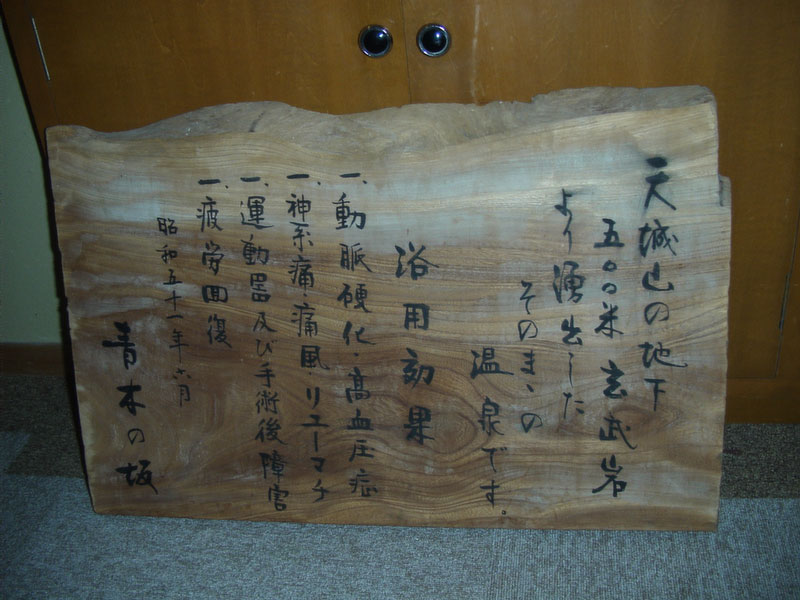 天城山の地下
五〇〇米玄武岩
より湧出した
そのまゝの
温泉です。
浴用効果
一、動脈硬化・高血圧症
一、神系痛・痛風・リユーマチ
一、運動器及び手術後障害
一、疲労回復
昭和五十一年六月
青木の坂